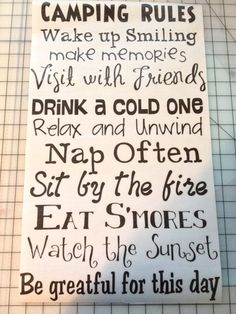 CAMPING RULES
Wake up Smiling
make memories
Visit with Friends
DRINK A COLD ONE
Relax and Unwind
Nap Often
Sit by the fire
EAT S'MORES
Watch the Sunset
Be greatful for this day